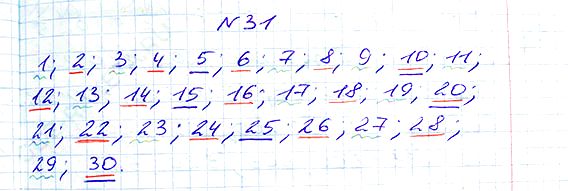 N31
1; 2; 3; 4; 5; 6; 7; 8; 9; 10; 11;
12; 13; 14; 15; 16; 17; 18; 19; 20;
21; 22; 23; 24; 25; 26; 27; 28;
29; 30.